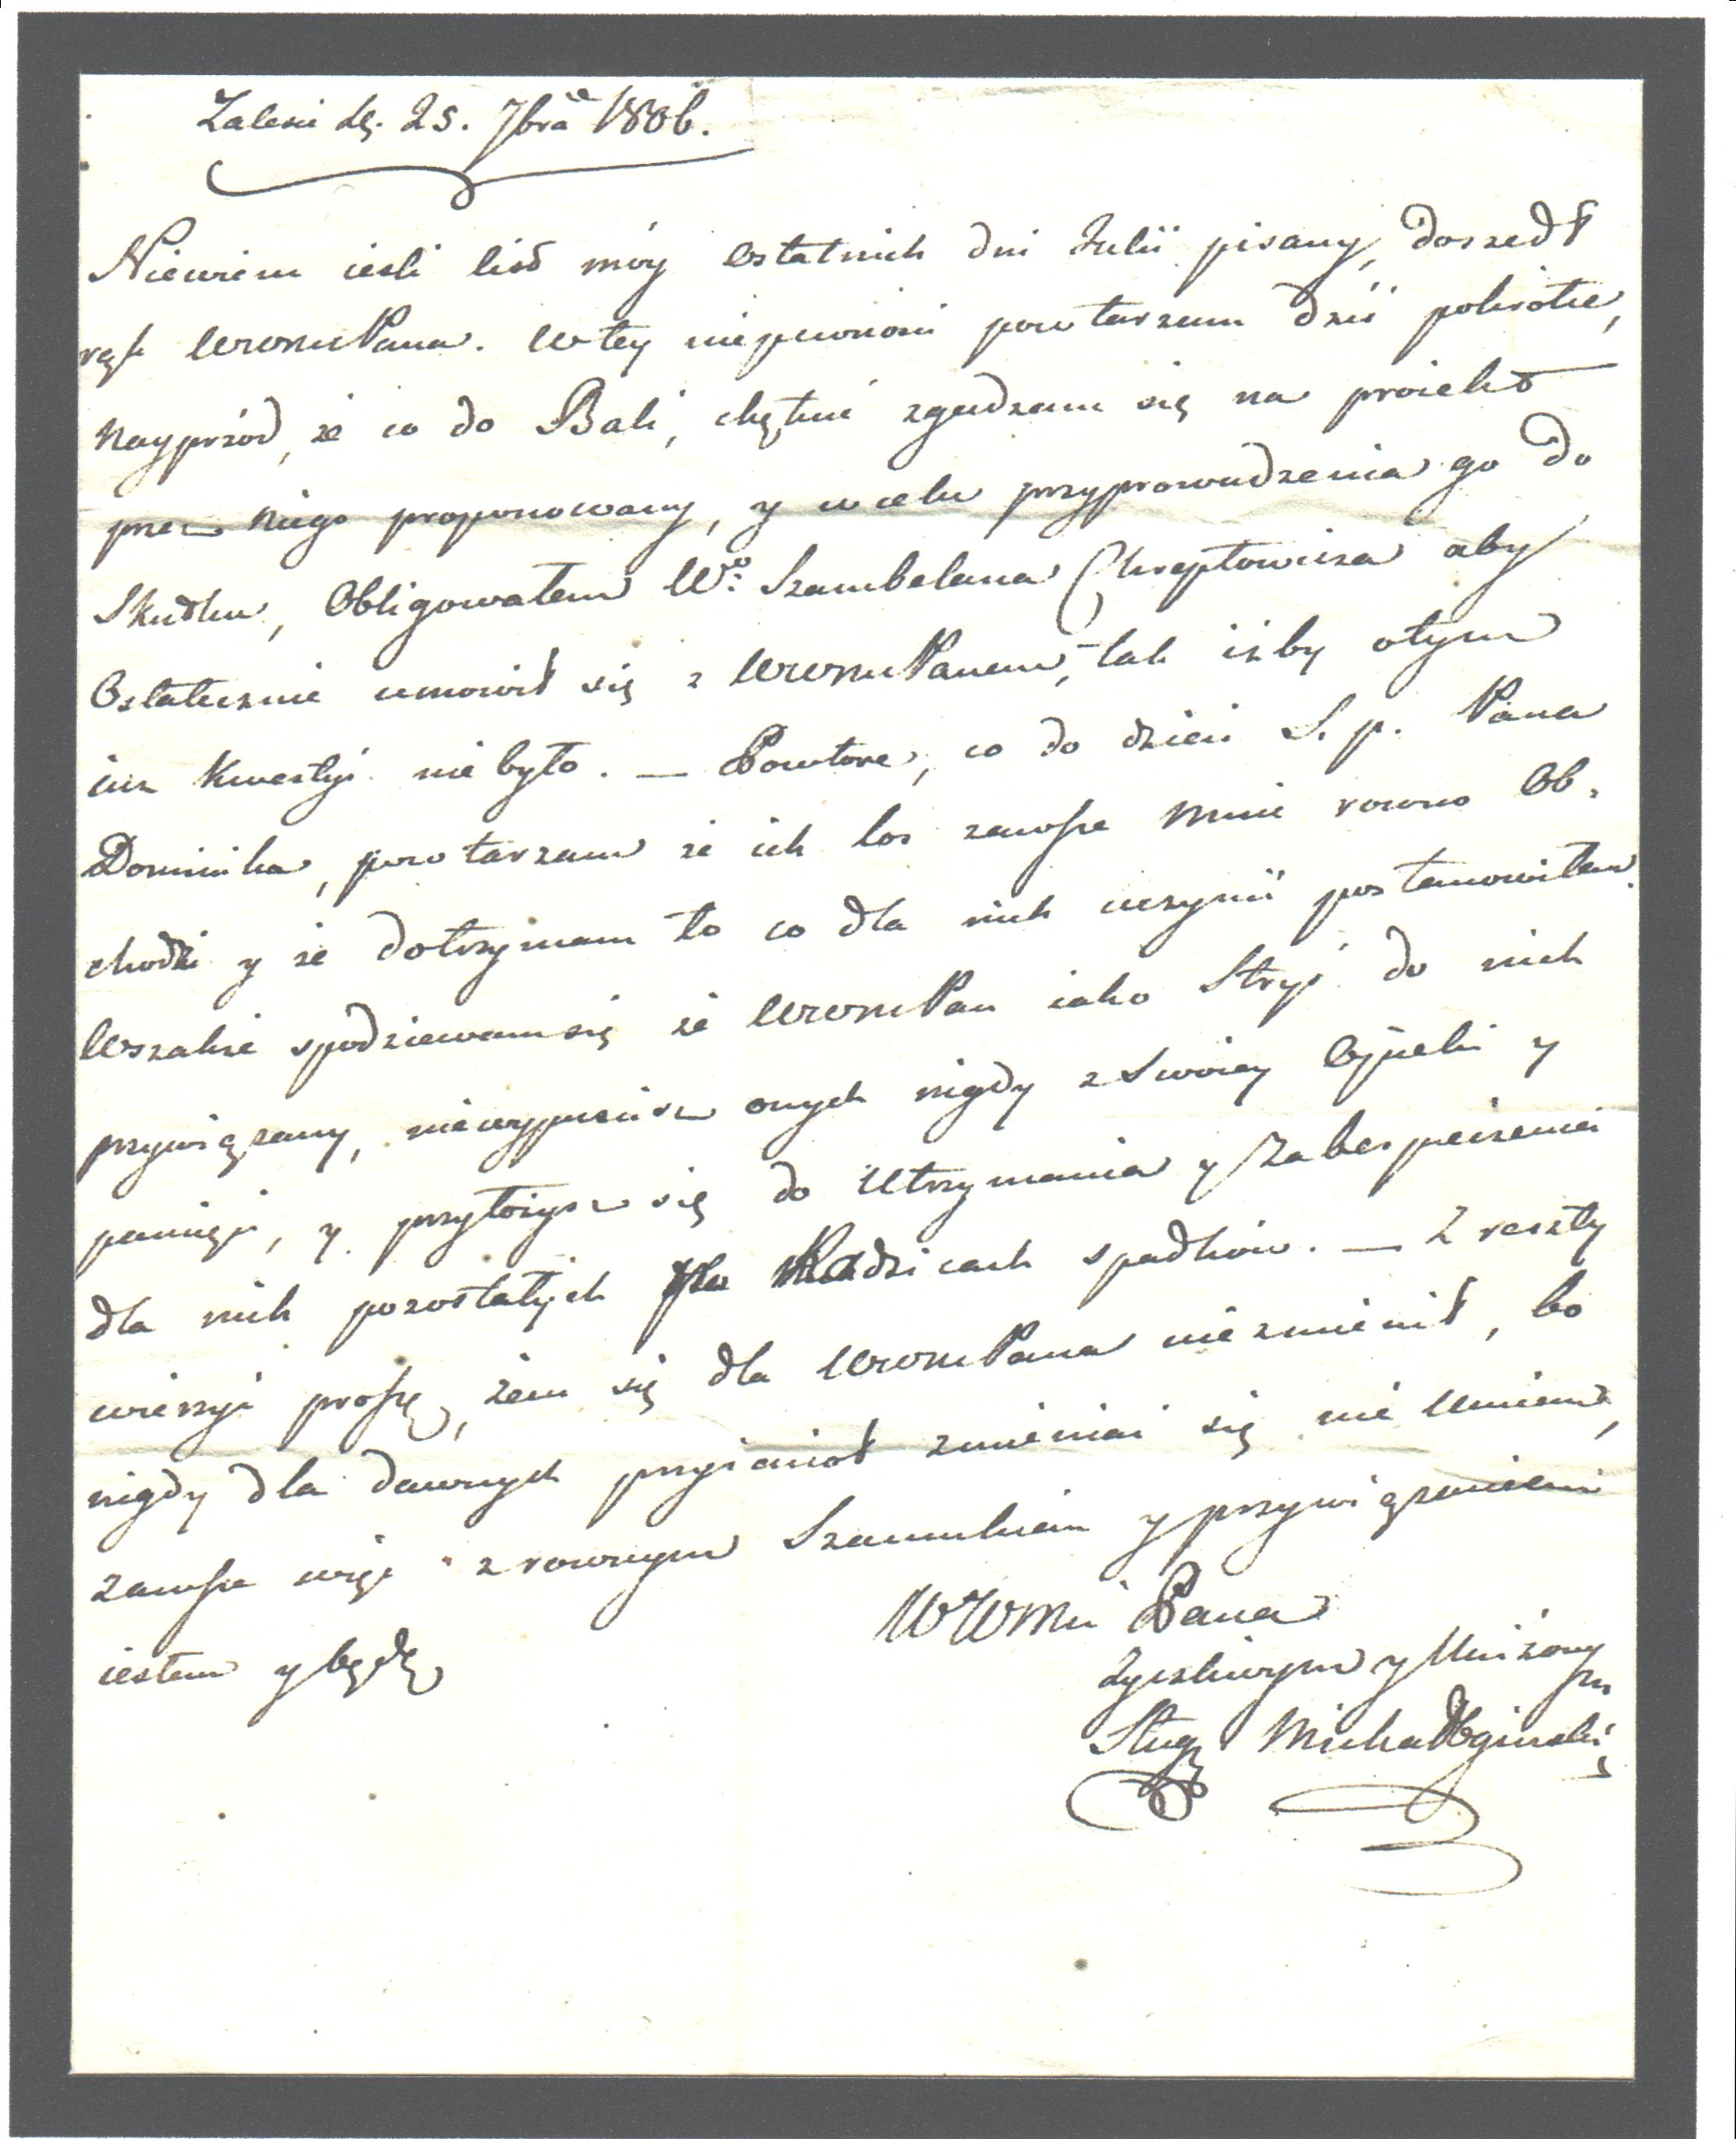 Zalesie dṇ. 25. 7bra 1806.
Niewiem iesli list móy Ostatnich dni Julii pisany, doszedł
rąk WWMPana. W tey niepewnosci powtarzam dziś pokrotce,
nayprzód, że co do Bali, chętnie zgadzam się na proiekt
przez niego proponowany, y w celu przyprowadzenia go do
Skutku, Obligowałem Wo: Szambelana Chreptowicza aby
Ostatecznie umowił się z WWMPanem, tak iżby otym
iuz kwestyi nie było. — Powtore, co do dzieci S. p. Pana
Dominika, powtarzam że ich los zawsze mnie rowno Ob-
chodzi y że dotrzymam to co dla nich uczynić postanowiłem.
Wszakże spodziewam się że WWMPan iako Stryi do nich
przywiązany, niewypuścisz onych nigdy z Swoiey Opieki y
pamięci, y przyłożysz się do Utrzymania y Zabespieczenia
dla nich pozostałych po Rodzicach spadków. — Z reszty
wierzyć proszę, żem się dla WWMPana nie zmienił, bo
nigdy dla dawnych przyiacioł zmieniać się nie Umiem,
zawsze więc z rownym Szacunkiem y przywiązaniem
iestem y będę
WWMPana
Zyczliwym y Uniżonym
Sługą Michał Ogiński